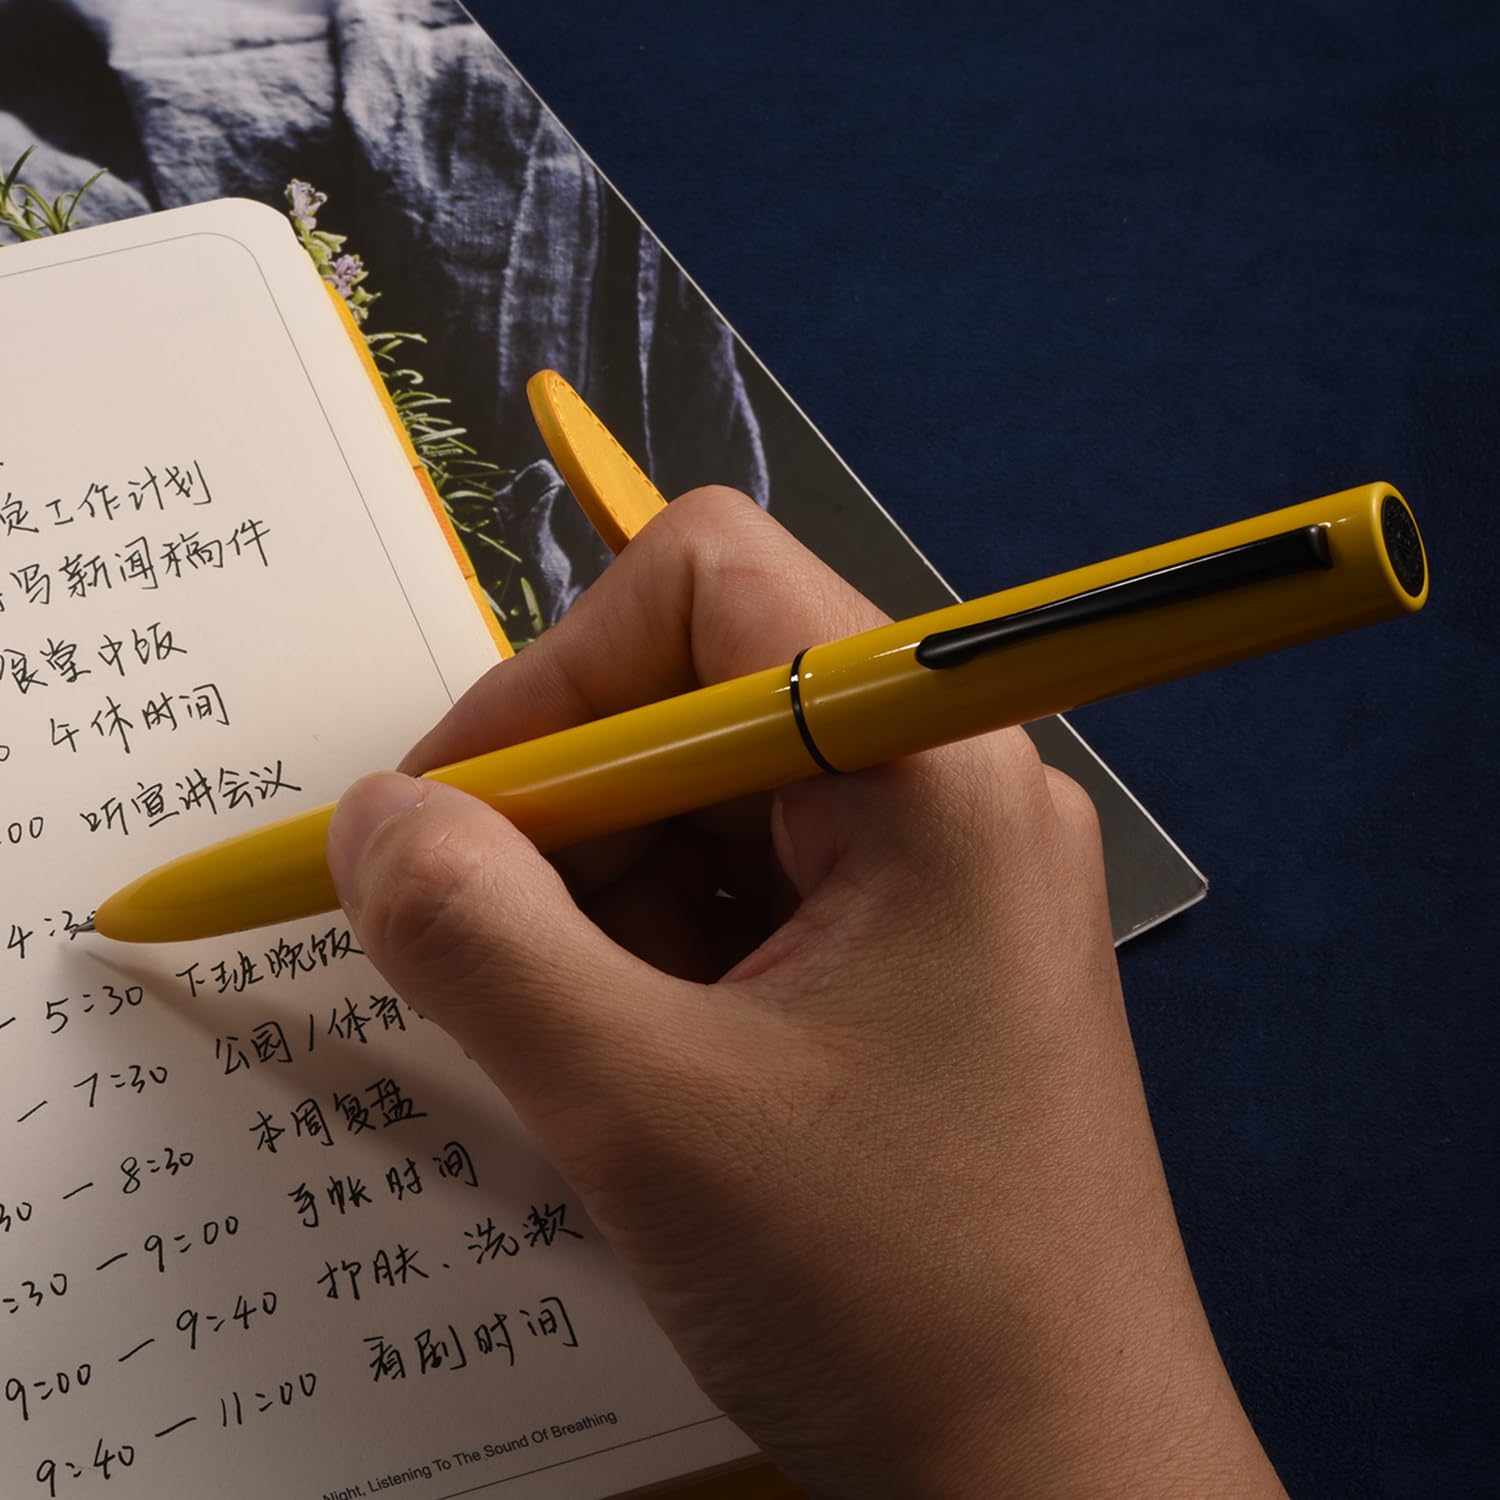 定工作计划
写新闻稿件
食堂中饭
午休时间
:00 听宣讲会议
4:30
— 5:30 下班晚饭
— 7:30 公园/体育
30 — 8:30 本周复盘
:30 — 9:00 手帐时间
9:00 — 9:40 护肤、洗漱
9:40 — 11:00 看剧时间
Night, Listening To The Sound Of Breathing